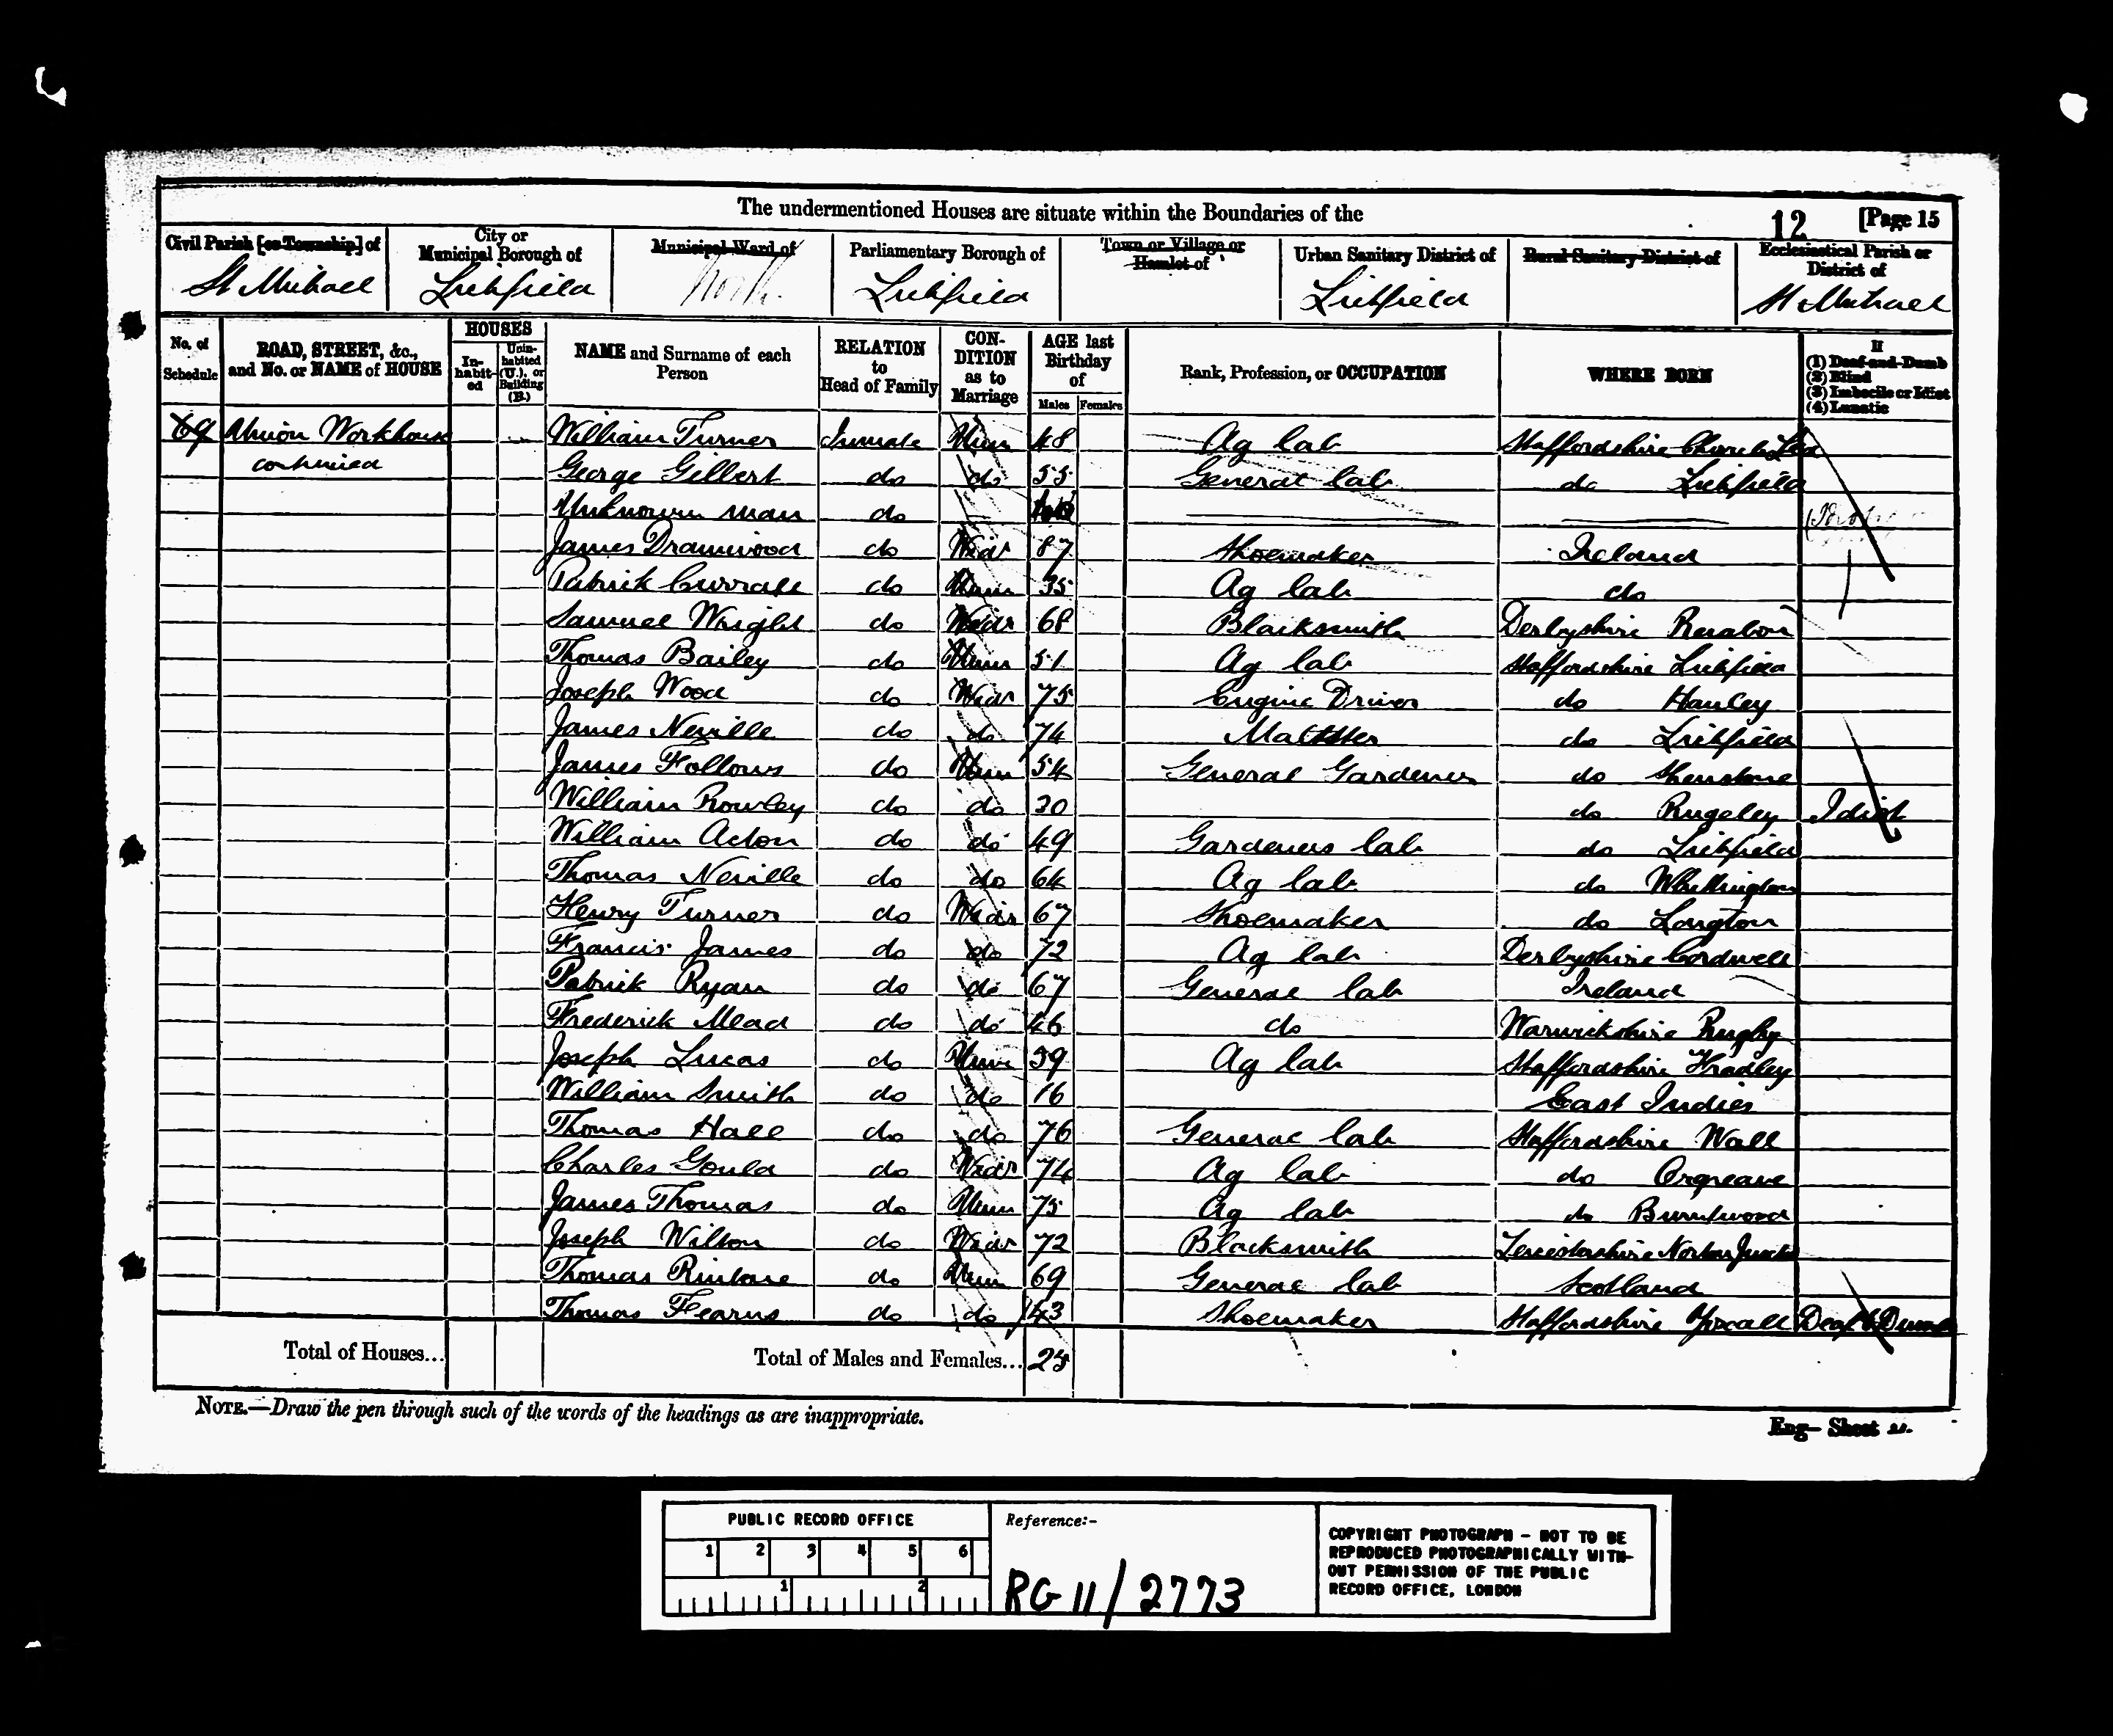 The undermentioned Houses are situate within the Boundaries of the
12 [Page 15
Civil Parish [or Township] of St Michael
City or Municipal Borough of Lichfield
Municipal Ward of North
Parliamentary Borough of Lichfield
Town or Village or Hamlet of
Urban Sanitary District of Lichfield
Rural Sanitary District of
Ecclesiastical Parish or District of St Michael
No. of Schedule
ROAD, STREET, &c., and No. or NAME of HOUSE
HOUSES
In-habit-ed
Unin-habited (U.), or Building (B.)
NAME and Surname of each Person
RELATION to Head of Family
CON-DITION as to Marriage
AGE last Birthday of
Males Females
Rank, Profession, or OCCUPATION
WHERE BORN
If
(1) Deaf-and-Dumb
(2) Blind
(3) Imbecile or Idiot
(4) Lunatic
69 Union Workhouse William Turner Inmate Unm 48 Ag lab Staffordshire
continued George Gilbert do do 55 General lab do Lichfield
Unknown man do
James Dramwood do Widr 87 Shoemaker Ireland
Patrick do Unm 35 Ag lab do
Samuel Wright do Widr 68 Blacksmith Derbyshire
Thomas Bailey do Unm 51 Ag lab Staffordshire Lichfield
Joseph Wood do Widr 75 Engine Driver do Hanley
James Neville do do 74 Maltster do Lichfield
James Follows do Unm 54 General Gardener do Shenstone
William Rowley do do 30 do Rugeley Idiot
William Acton do do 49 Gardeners lab do Lichfield
Thomas Neville do do 64 Ag lab do Whittington
Henry Turner do Widr 67 Shoemaker do Longton
Francis James do do 72 Ag lab Derbyshire
Patrick Ryan do do 67 General lab Ireland
Frederick Mead do do 46 do Warwickshire Rugby
Joseph Lucas do Unm 39 Ag lab Staffordshire Fradley
William Smith do do 16 East Indies
Thomas Hall do do 76 General lab Staffordshire Wall
Charles Gould do Widr 74 Ag lab do Orgreave
James Thomas do Unm 75 Ag lab do Burntwood
Joseph Wilton do Widr 72 Blacksmith Leicestershire Norton
Thomas do Unm 69 General lab Scotland
Thomas Fearns do do 43 Shoemaker Staffordshire Yoxall Deaf & Dumb
Total of Houses...
Total of Males and Females... 25
NOTE.—Draw the pen through such of the words of the headings as are inappropriate.
Eng— Sheet
PUBLIC RECORD OFFICE
1 2 3 4 5 6
1 2
Reference:-
RG 11/2773
COPYRIGHT PHOTOGRAPH – NOT TO BE
REPRODUCED PHOTOGRAPHICALLY WITH-
OUT PERMISSION OF THE PUBLIC
RECORD OFFICE, LONDON